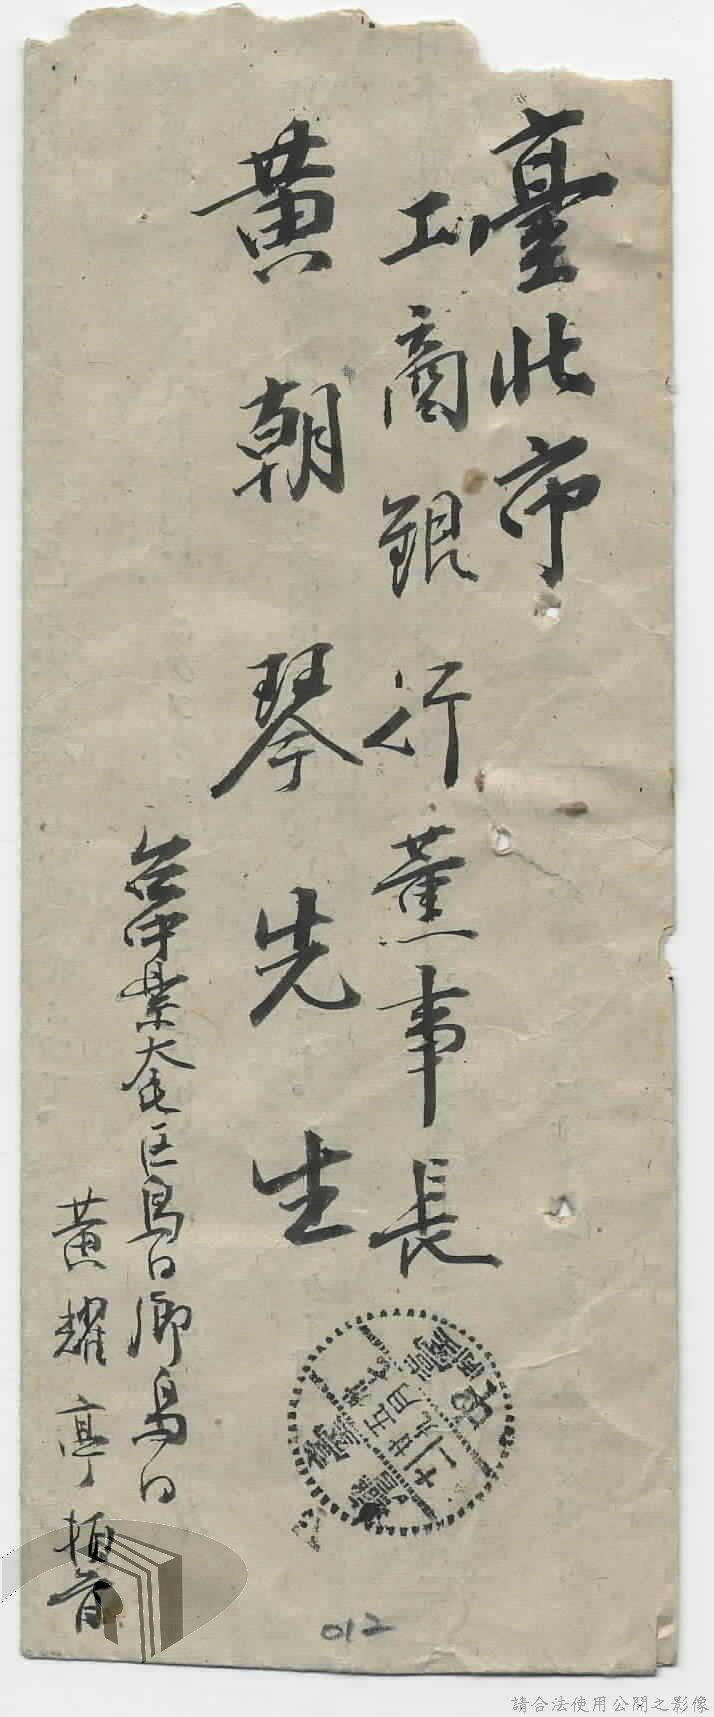 臺北市
工商銀行董事長
黃朝琴先生
台中縣大屯区烏日鄉烏日
黃耀亭 頓首
臺灣
012
請合法使用公開之影像